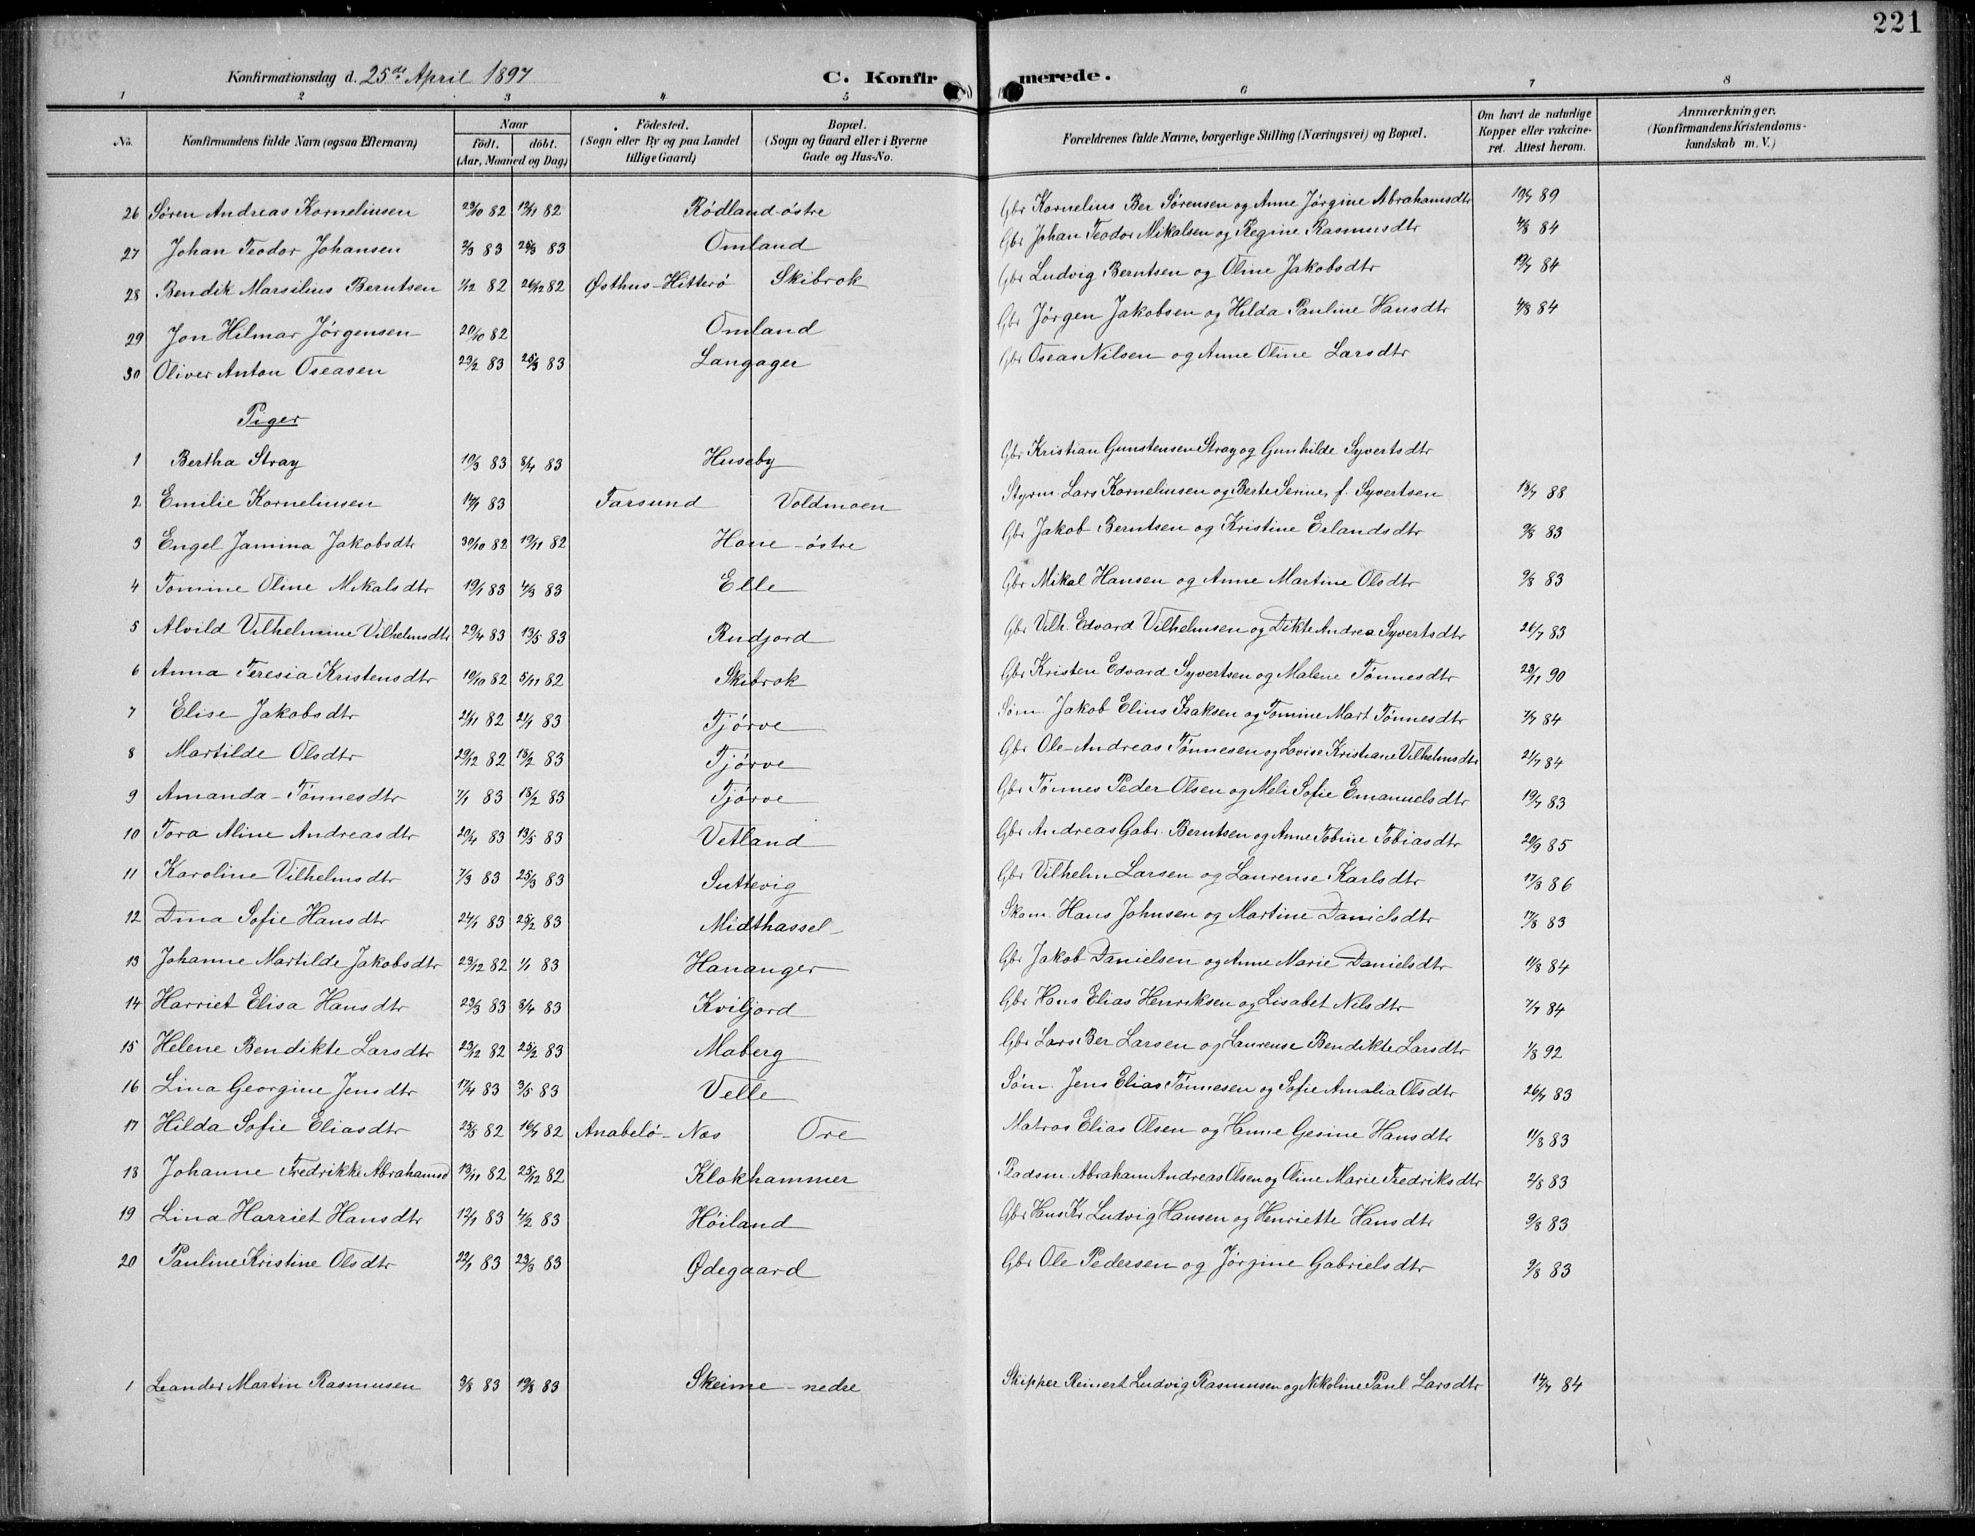 221
Konfirmationsdag d. 25de April 1897
C. Konfirmerede.
1 2 3 4 5 6 7 8
No. Konfirmandens fulde Navn (ogsaa Efternavn) Naar födt. döbt. (Aar, Maaned og Dag) Födested. (Sogn eller By og paa Landet tillige Gaard) Bopæl. (Sogn og Gaard eller i Byerne Gade og Hus-No. Forældrenes fulde Navne, borgerlige Stilling (Næringsvei) og Bopæl. Om havt de naturlige Kopper eller vakcineret. Attest herom. Anmærkninger. (Konfirmandens Kristendomskundskab m. V.)
26 Søren Andreas Korneliusen 29/10 82 12/11 82 Rødland østre Gbr Kornelius Ber Sørensen og Anne Jørgine Abrahamsdtr 19/7 89
27 Johan Teodor Johansen 2/3 83 26/3 83 Omland Gbr Johan Teodor Mikalsen og Regine Rasmusdtr 4/8 84
28 Bendik Marsilius Berntsen 1/12 82 26/12 82 Østhus-Hitterø Skibrok Gbr Ludvig Berntsen og Oline Jakobsdtr 19/7 84
29 Jon Hilmar Jørgensen 20/10 82 Omland Gbr Jørgen Jakobsen og Hilda Pauline Hansdtr 4/8 84
30 Oliver Anton Oseasen 23/2 83 25/3 83 Langager Gbr Oseas Nilsen og Anne Oline Larsdtr
Piger
1 Bertha Stray 10/3 83 8/4 83 Huseby Gbr Kristian Gunstensen Stray og Gunhilde Syvertsdtr
2 Emilie Korneliusen 83 Farsund Voldmoen Styrm Lars Korneliusen og Berte Serine, f. Syvertsen 13/7 88
3 Engel Jamina Jakobsdtr 30/10 82 19/11 82 Hane-østre Gbr Jakob Berntsen og Kristine Erlandsdtr 9/8 83
4 Tomine Oline Mikalsdtr 19/1 83 4/3 83 Elle Gbr Mikal Hansen og Anne Martine Olsdtr 9/8 83
5 Alvild Vilhelmine Vilhelmsdtr 29/4 83 13/5 83 Rudjord Gbr Vilh. Edvard Vilhelmsen og Dikte Andrea Syvertsdtr 26/7 83
6 Anna Teresia Kristensdtr 19/10 82 5/11 82 Skibrok Gbr Kristen Edvard Syvertsen og Malene Tønnesdtr 23/11 90
7 Elise Jakobsdtr 2/11 82 2/1 83 Tjørve Søm. Jakob Elius Isaksen og Tomine Mart Tønnesdtr 7/7 84
8 Martilde Olsdtr 29/12 82 18/2 83 Tjørve Gbr Ole Andreas Tønnesen og Lovise Kristiane Vilhelmsdtr 21/7 84
9 Amanda Tønnesdtr 7/1 83 18/2 83 Tjørve Gbr Tønnes Peder Olsen og Mele Sofie Emanuelsdtr 19/7 83
10 Tora Aline Andreasdtr 20/4 83 13/5 83 Vetland Gbr Andreas Gabr. Berntsen og Anne Tobine Tobiasdtr 20/9 85
11 Karoline Vilhelmsdtr 7/3 83 25/3 83 Suttevig Gbr Vilhelm Larsen og Laurense Karlsdtr 17/3 86
12 Dina Sofie Hansdtr 24/1 83 25/2 83 Midthassel Skom. Hans Johnsen og Martine Danielsdtr 17/8 83
13 Johanne Martilde Jakobsdtr 23/12 82 1/1 83 Hananger Gbr Jakob Danielsen og Anne Marie Danielsdtr 11/8 84
14 Harriet Elisa Hansdtr 23/3 83 8/4 83 Kviljord Gbr Hans Elias Henriksen og Lisabet Nilsdtr 7/7 84
15 Helene Bendikte Larsdtr 23/12 82 25/2 83 Maberg Gbr Lars Ber Larsen og Laurense Bendikte Larsdtr 1/8 92
16 Lina Georgine Jensdtr 17/4 83 3/5 83 Velle Søm. Jens Elias Tønnesen og Sofie Amalia Olsdtr 26/7 83
17 Hilda Sofie Eliasdtr 25/5 82 16/7 82 Anabelø-Næs Ore Matros Elias Olsen og Hanne Gesine Hansdtr 11/8 83
18 Johanne Fredrikke Abrahamsd 13/11 82 25/12 82 Klokhammer Pladsm. Abraham Andreas Olsen og Oline Marie Fredriksdtr 2/8 83
19 Lina Harriet Hansdtr 12/1 83 4/2 83 Høiland Gbr Hans Kr Ludvig Hansen og Henriette Hansdtr 9/8 83
20 Pauline Kristine Olsdtr 22/1 83 23/3 83 Ødegaard Gbr Ole Pedersen og Jørgine Gabrielsdtr 9/8 83
1 Leander Martin Rasmusen 3/8 83 19/8 83 Skeime nedre Skipper Reinert Ludvig Rasmusen og Nikoline Paul Larsdtr 14/7 84